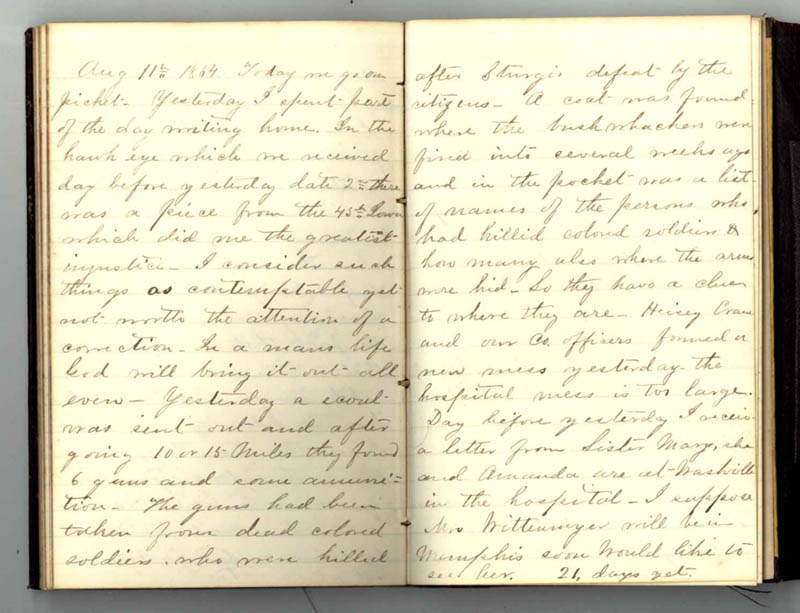 Aug 11th 1864 Today we go on
picket- Yesterday I spent part
of the day writing home. In the
hawk eye which we received
day before yesterday date 2nd there
was a piece from the 45th Iowa
which did me the greatest
injustice- I consider such
things as contemptable yet
not worth the attention of a
correction- In a mans life
God will bring it out all
even- Yesterday a scout
was sent out and after
going 10 or 15 Miles they found
6 guns and some amuni-
tion- The guns had been
taken from dead colored
soldiers. who were killed
after Sturgis defeat by the
citizens- A coat was found
where the bushwhackers were
fired into several weeks ago
and in the pocket was a list
of names of the persons who
had killid colored soldiers &
how many also where the arms
were hid- So they have a clue
to where they are- Heisey Crane
and our Co. officers formed a
new mess yesterday- the
hospital mess is too large.
Day before yesterday I receiv
a letter from Sister Mary, she
and Amanda are at Nashville
in the hospital- I suppose
Mrs Wittenmyer will be in
Memphis soon Would like to
see her. 21, days yet.